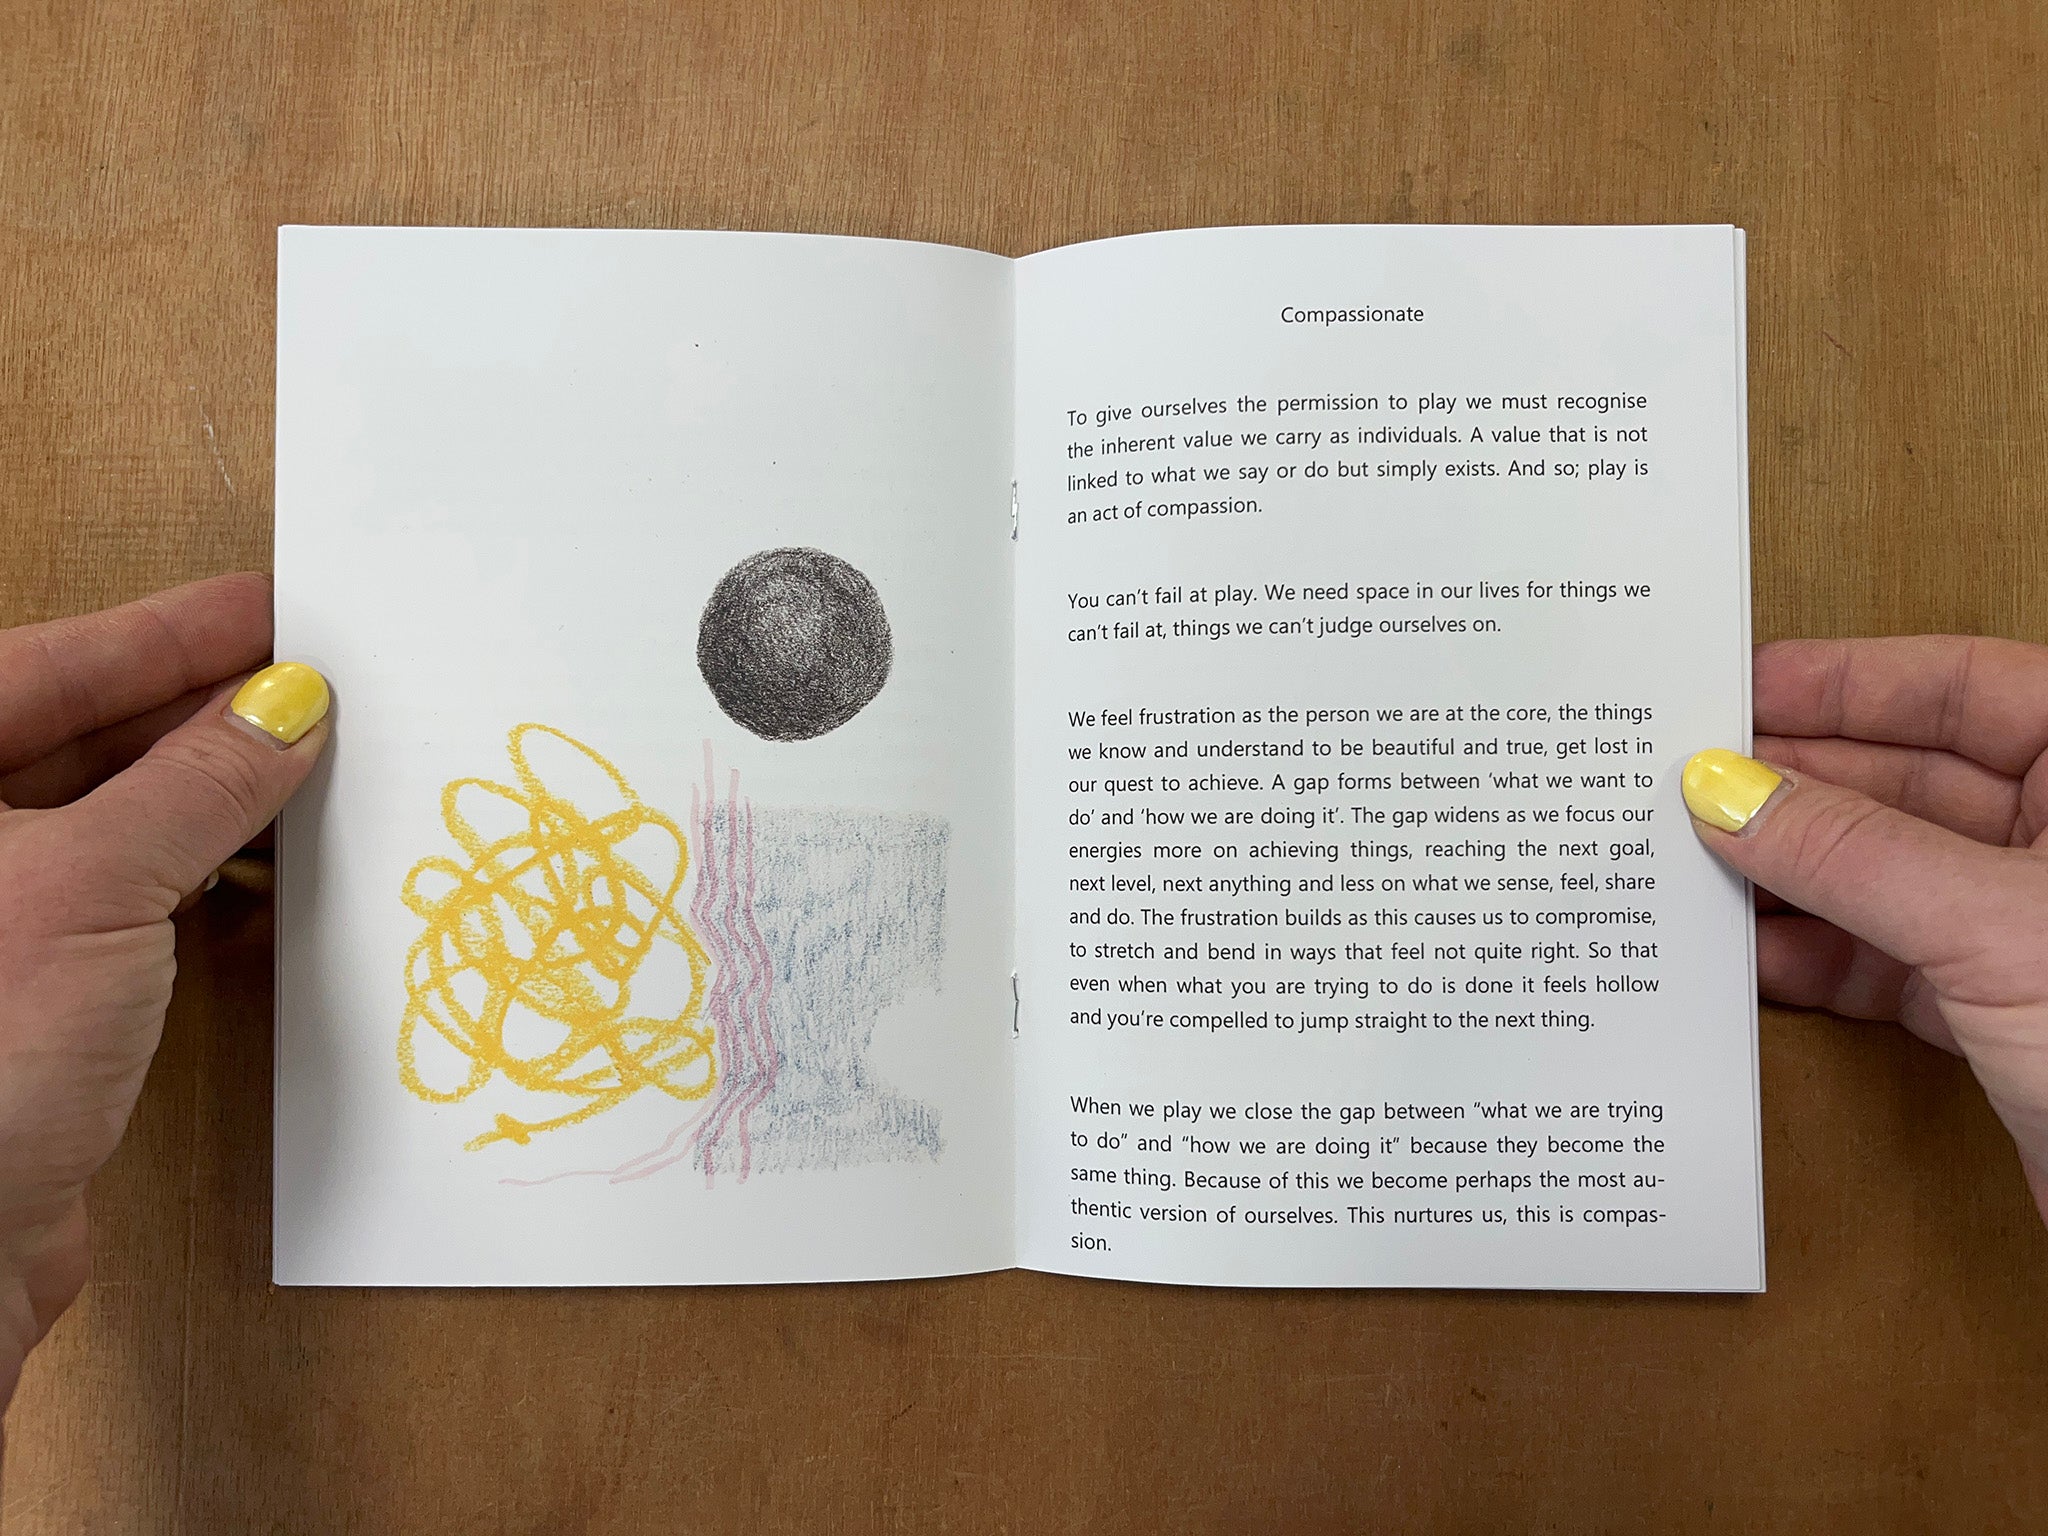 Compassionate
To give ourselves the permission to play we must recognise
the inherent value we carry as individuals. A value that is not
linked to what we say or do but simply exists. And so; play is
an act of compassion.
You can’t fail at play. We need space in our lives for things we
can’t fail at, things we can’t judge ourselves on.
We feel frustration as the person we are at the core, the things
we know and understand to be beautiful and true, get lost in
our quest to achieve. A gap forms between ‘what we want to
do’ and ‘how we are doing it’. The gap widens as we focus our
energies more on achieving things, reaching the next goal,
next level, next anything and less on what we sense, feel, share
and do. The frustration builds as this causes us to compromise,
to stretch and bend in ways that feel not quite right. So that
even when what you are trying to do is done it feels hollow
and you’re compelled to jump straight to the next thing.
When we play we close the gap between “what we are trying
to do” and “how we are doing it” because they become the
same thing. Because of this we become perhaps the most au-
thentic version of ourselves. This nurtures us, this is compas-
sion.